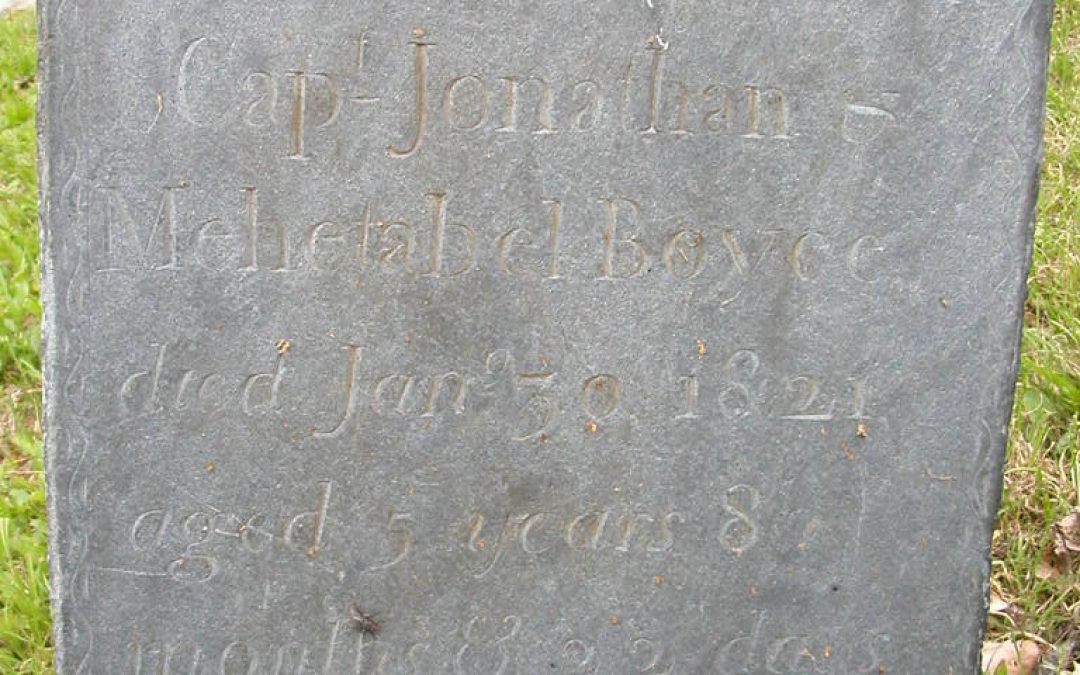 Capt. Jonathan &
Mehetabel Boyce
died Jan. 30 1821
aged 5 years 8
months & 22 days